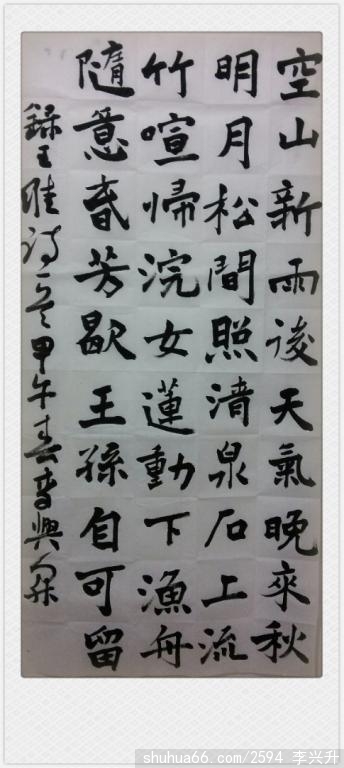 空山新雨後天氣晚來秋
明月松間照清泉石上流
竹喧歸浣女蓮動下漁舟
隨意春芳歇王孫自可留
錄王維诗一首甲午春李興
shuhua66.com/2594 李兴升